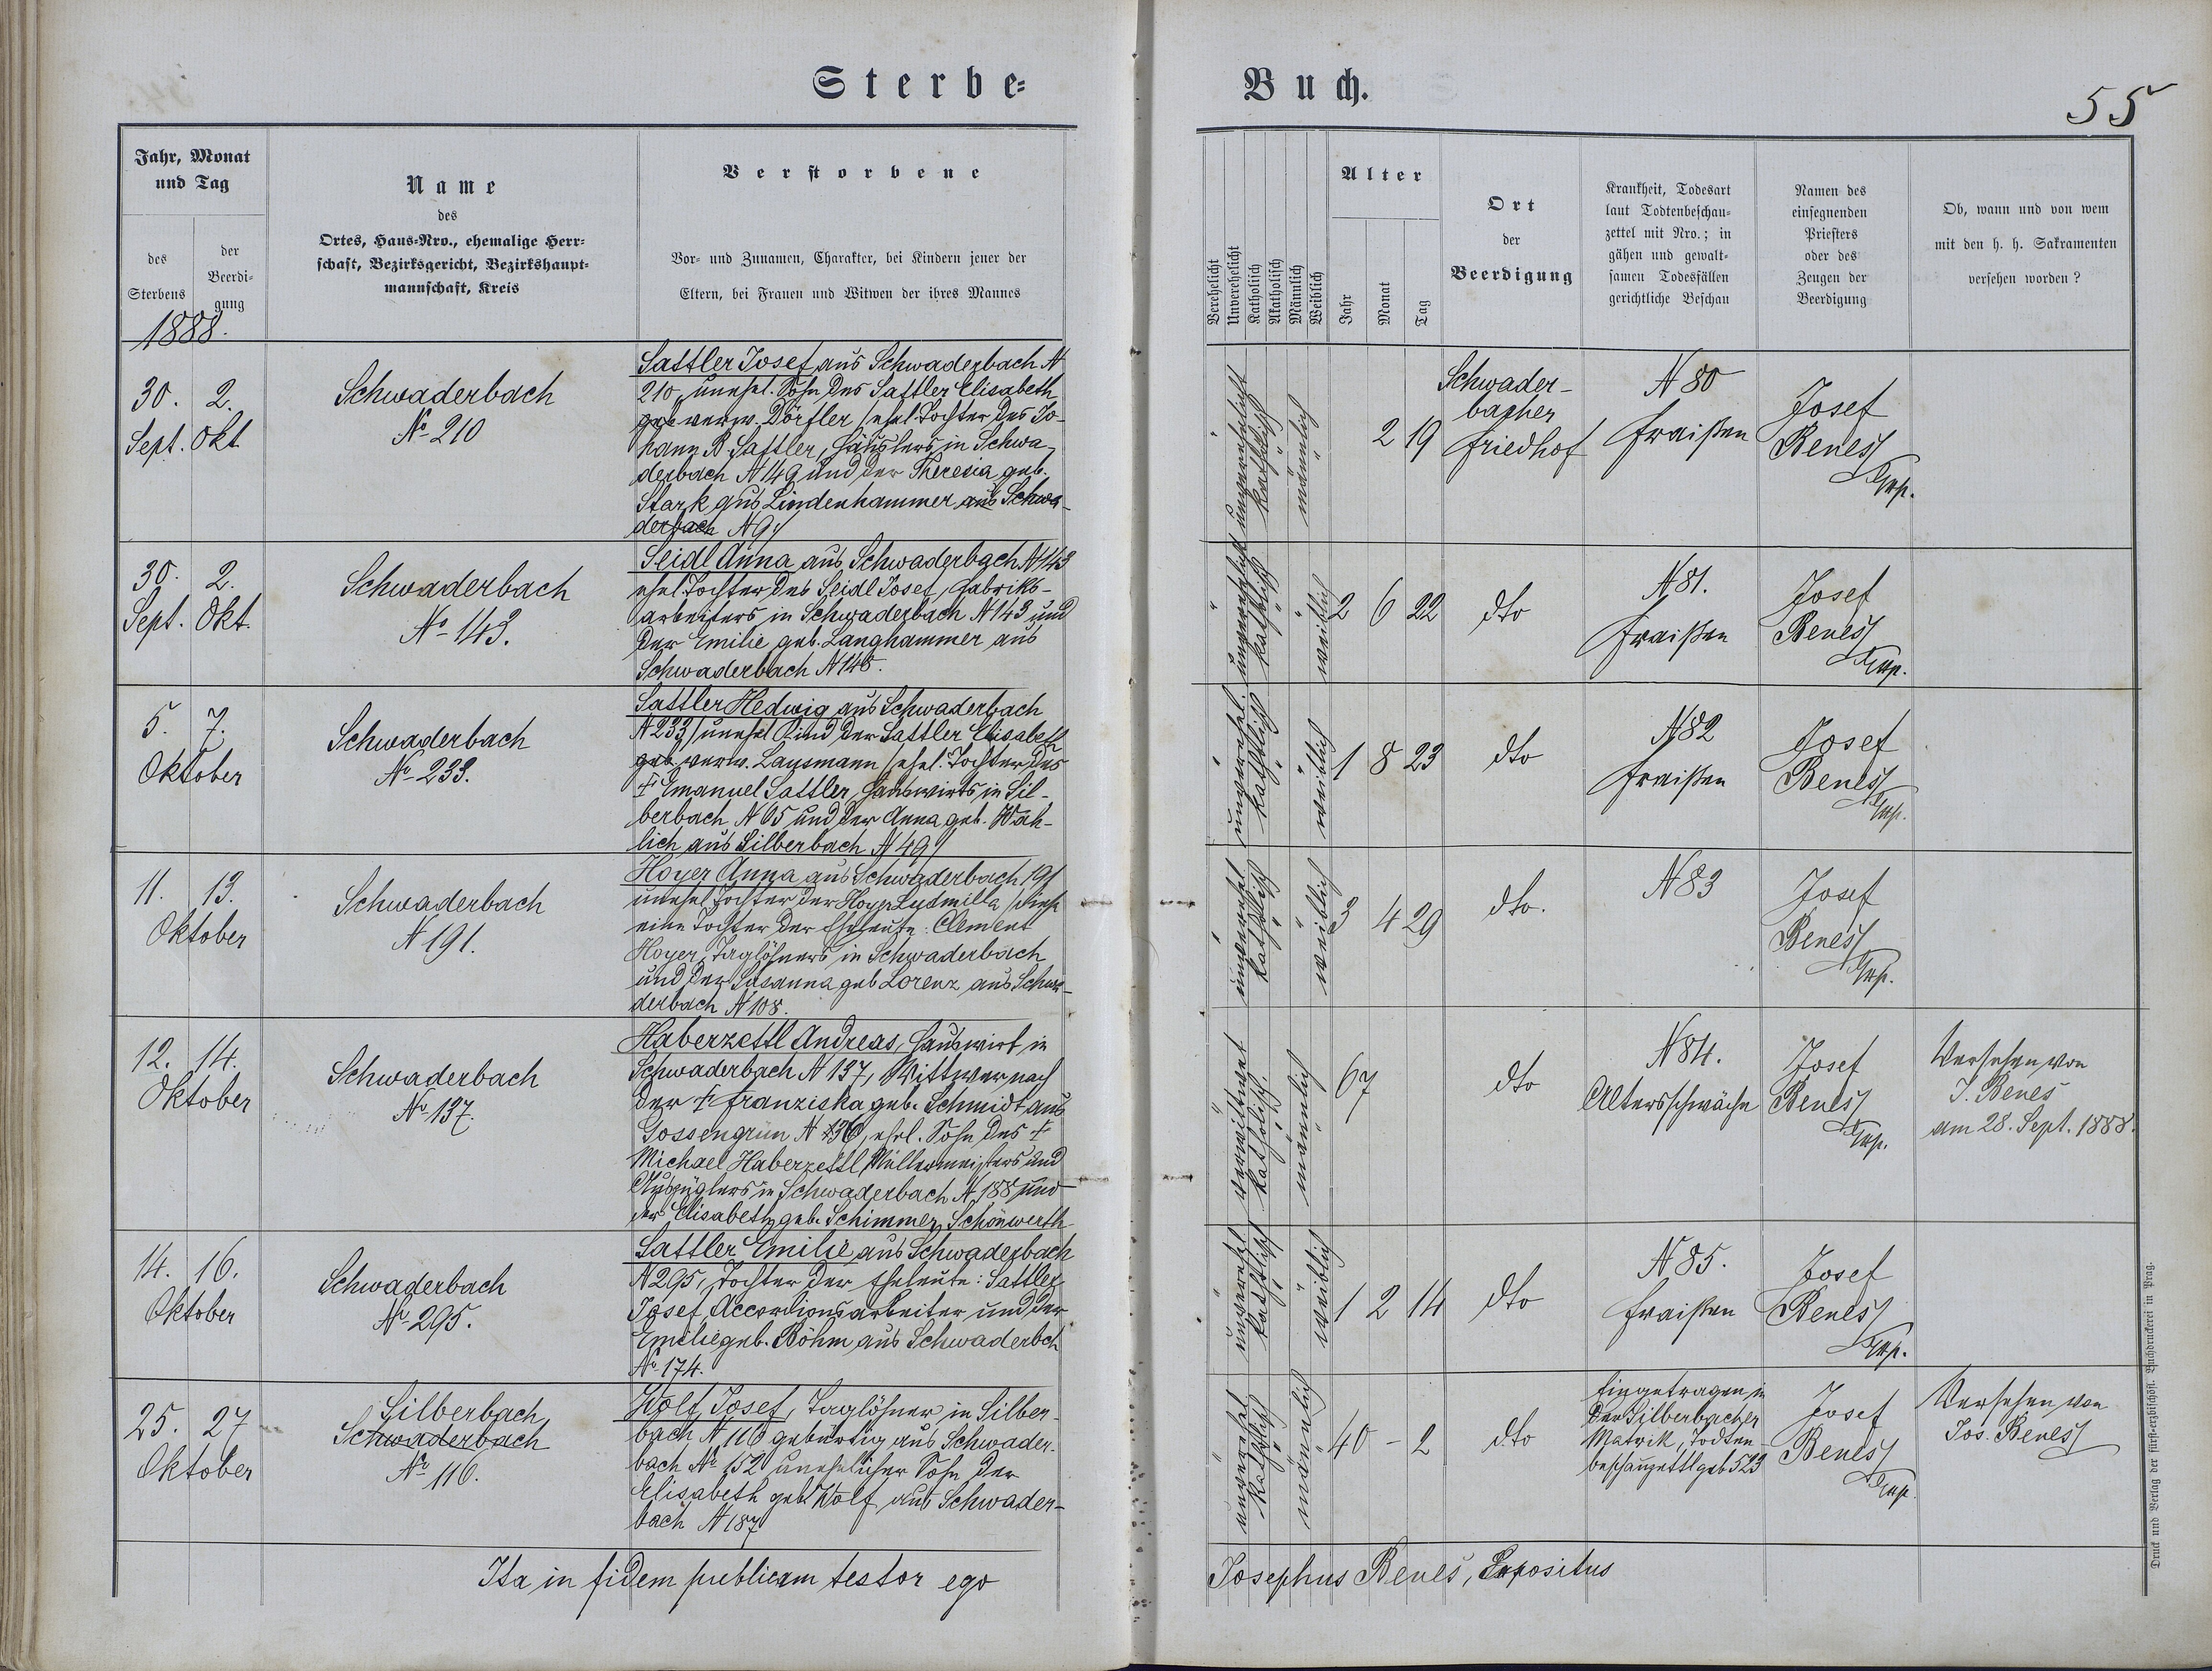 Sterbe-
Buch.
55
Jahr, Monat
und Tag
des
Sterbens
der
Beerdi-
gung
1888.
Name
des
Ortes, Haus-Nro., ehemalige Herr-
schaft, Bezirksgericht, Bezirkshaupt-
mannschaft, Kreis
Verstorbene
Vor- und Zunamen, Charakter, bei Kindern jener der
Eltern, bei Frauen und Witwen der ihres Mannes
Verehelicht
Unverehelicht
Katholisch
Akatholisch
Männlich
Weiblich
Alter
Jahr
Monat
Tag
Ort
der
Beerdigung
Krankheit, Todesart
laut Todtenbeschau-
zettel mit Nro.; in
gähen und gewalt-
samen Todesfällen
gerichtliche Beschau
Namen des
einsegnenden
Priesters
oder des
Zeugen der
Beerdigung
Ob, wann und von wem
mit den h. h. Sakramenten
versehen worden?
30. 2.
Sept. Okt
Schwaderbach
No 210
Sattler Josef aus Schwaderbach N
210, unehel. Sohn des Sattler Elisabeth
geb verw. Dörfler / ehel. Tochter des Jo-
hann B. Sattler, Häuslers in Schwa-
derbach N 149 und der Theresia geb.
Stark aus Lindenhammer aus Schwa-
derbach N 9/
unverehelicht
katholisch
männlich
2 19
Schwader-
bacher
Friedhof
N 80
Fraißen
Josef
Benes/
Exp.
30. 2.
Sept. Okt.
Schwaderbach
No 143.
Seidl Anna aus Schwaderbach N 143
ehel Tochter des Seidl Josef, Fabriks-
arbeiters in Schwaderbach N 143 und
der Emilie geb. Langhammer aus
Schwaderbach N 148.
unverehelicht
katholisch
weiblich
2 6 22
dto
N 81.
Fraißen
Josef
Benes/
Exp.
5. 7.
Oktober
Schwaderbach
No 233.
Sattler Hedwig aus Schwaderbach
N 233/ unehel Kind der Sattler Elisabeth
geb. verw. Lausmann / ehel. Tochter des
† Emanuel Sattler, Hauswirts in Sil-
berbach N 65 und der Anna geb. Wäh-
lich aus Silberbach N 49/
unverehel.
katholisch
weiblich
1 8 23
dto
N 82
Fraißen
Josef
Benes/
Exp.
11. 13.
Oktober
Schwaderbach
N 191.
Hoyer Anna aus Schwaderbach 191
unehel Tochter der Hoyer Ludmilla / diese
eine Tochter der Eheleute: Clement
Hoyer, Taglöhners in Schwaderbach
und der Susanna geb Lorenz aus Schwa-
derbach N 108.
unverehel
katholisch
weiblich
3 4 29
dto.
N 83
Josef
Benes/
Exp.
12. 14.
Oktober
Schwaderbach
No 137.
Haberzettl Andreas, Hauswirt in
Schwaderbach N 137, Wittwer nach
der † Franziska geb. Schmidt aus
Gossengrün N 136, ehel. Sohn des †
Michael Haberzettl, Müllermeisters und
Auszüglers in Schwaderbach N 188 und
der Elisabeth geb. Schimmer, Schönwerth
verwittwet
katholisch.
männlich
67
dto
N 84.
Altersschwäche
Josef
Benes/
Exp.
Versehen von
J. Benes
am 28. Sept. 1888.
14. 16.
Oktober
Schwaderbach
No 295.
Sattler Emilie aus Schwaderbach
N 295, Tochter der Eheleute: Sattler
Josef, Accordionsarbeiter und der
Emilie geb. Böhm aus Schwaderbch
No 174.
unverehel
katholisch
weiblich
1 2 14
dto
N 85.
Fraißen
Josef
Benes/
Exp.
25. 27
Oktober
Silberbach,
Schwaderbach
No 116.
Wolf Josef, Taglöhner in Silber-
bach N 116 gebürtig aus Schwader-
bach No 152 unehelicher Sohn der
Elisabeth geb. Wolf aus Schwader-
bach N 187
unverehel
katholisch
männlich
40 - 2
dto
Eingetragen in
der Silberbacher
Matrik, Todten-
beschauzettl 523
Josef
Benes/
Exp.
Versehen von
Jos. Benes/
Ita in fidem publicam testor ego
Josephus Beneš, Expositus
Druck und Verlag der fürst-erzbischöfl. Buchdruckerei in Prag.